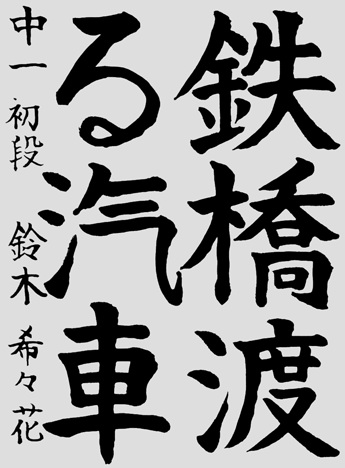 鉄橋渡
る汽車
中一 初段 鈴木 希々花